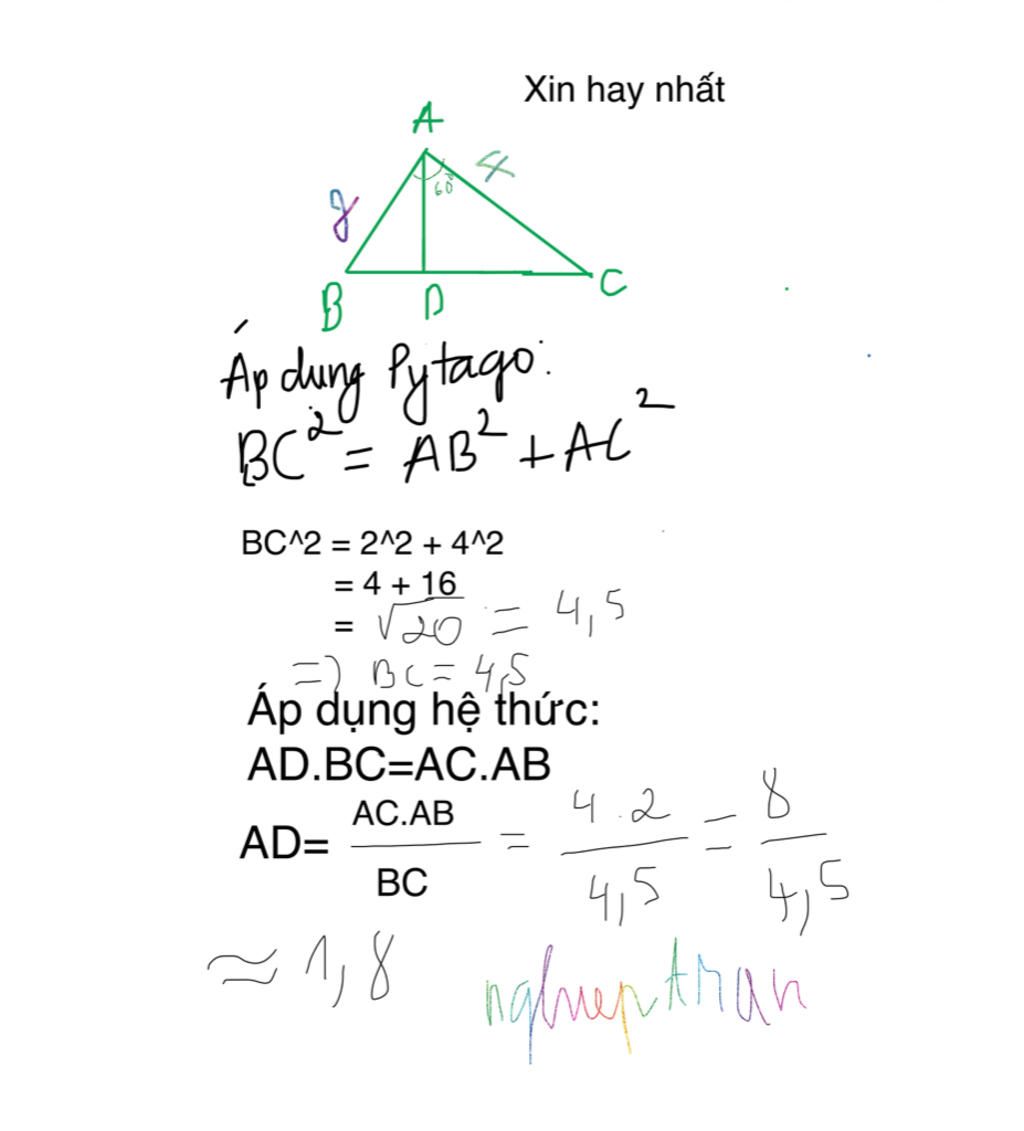 Xin hay nhất
A
2
60°
4
B
D
C
Áp dụng Pytago:
BC² = AB² + AC²
BC^2 = 2^2 + 4^2
= 4 + 16
= √20 = 4,5
=> BC = 4,5
Áp dụng hệ thức:
AD.BC=AC.AB
AD= AC.AB / BC = 4.2 / 4,5 = 8 / 4,5
≈ 1,8
nghieptran